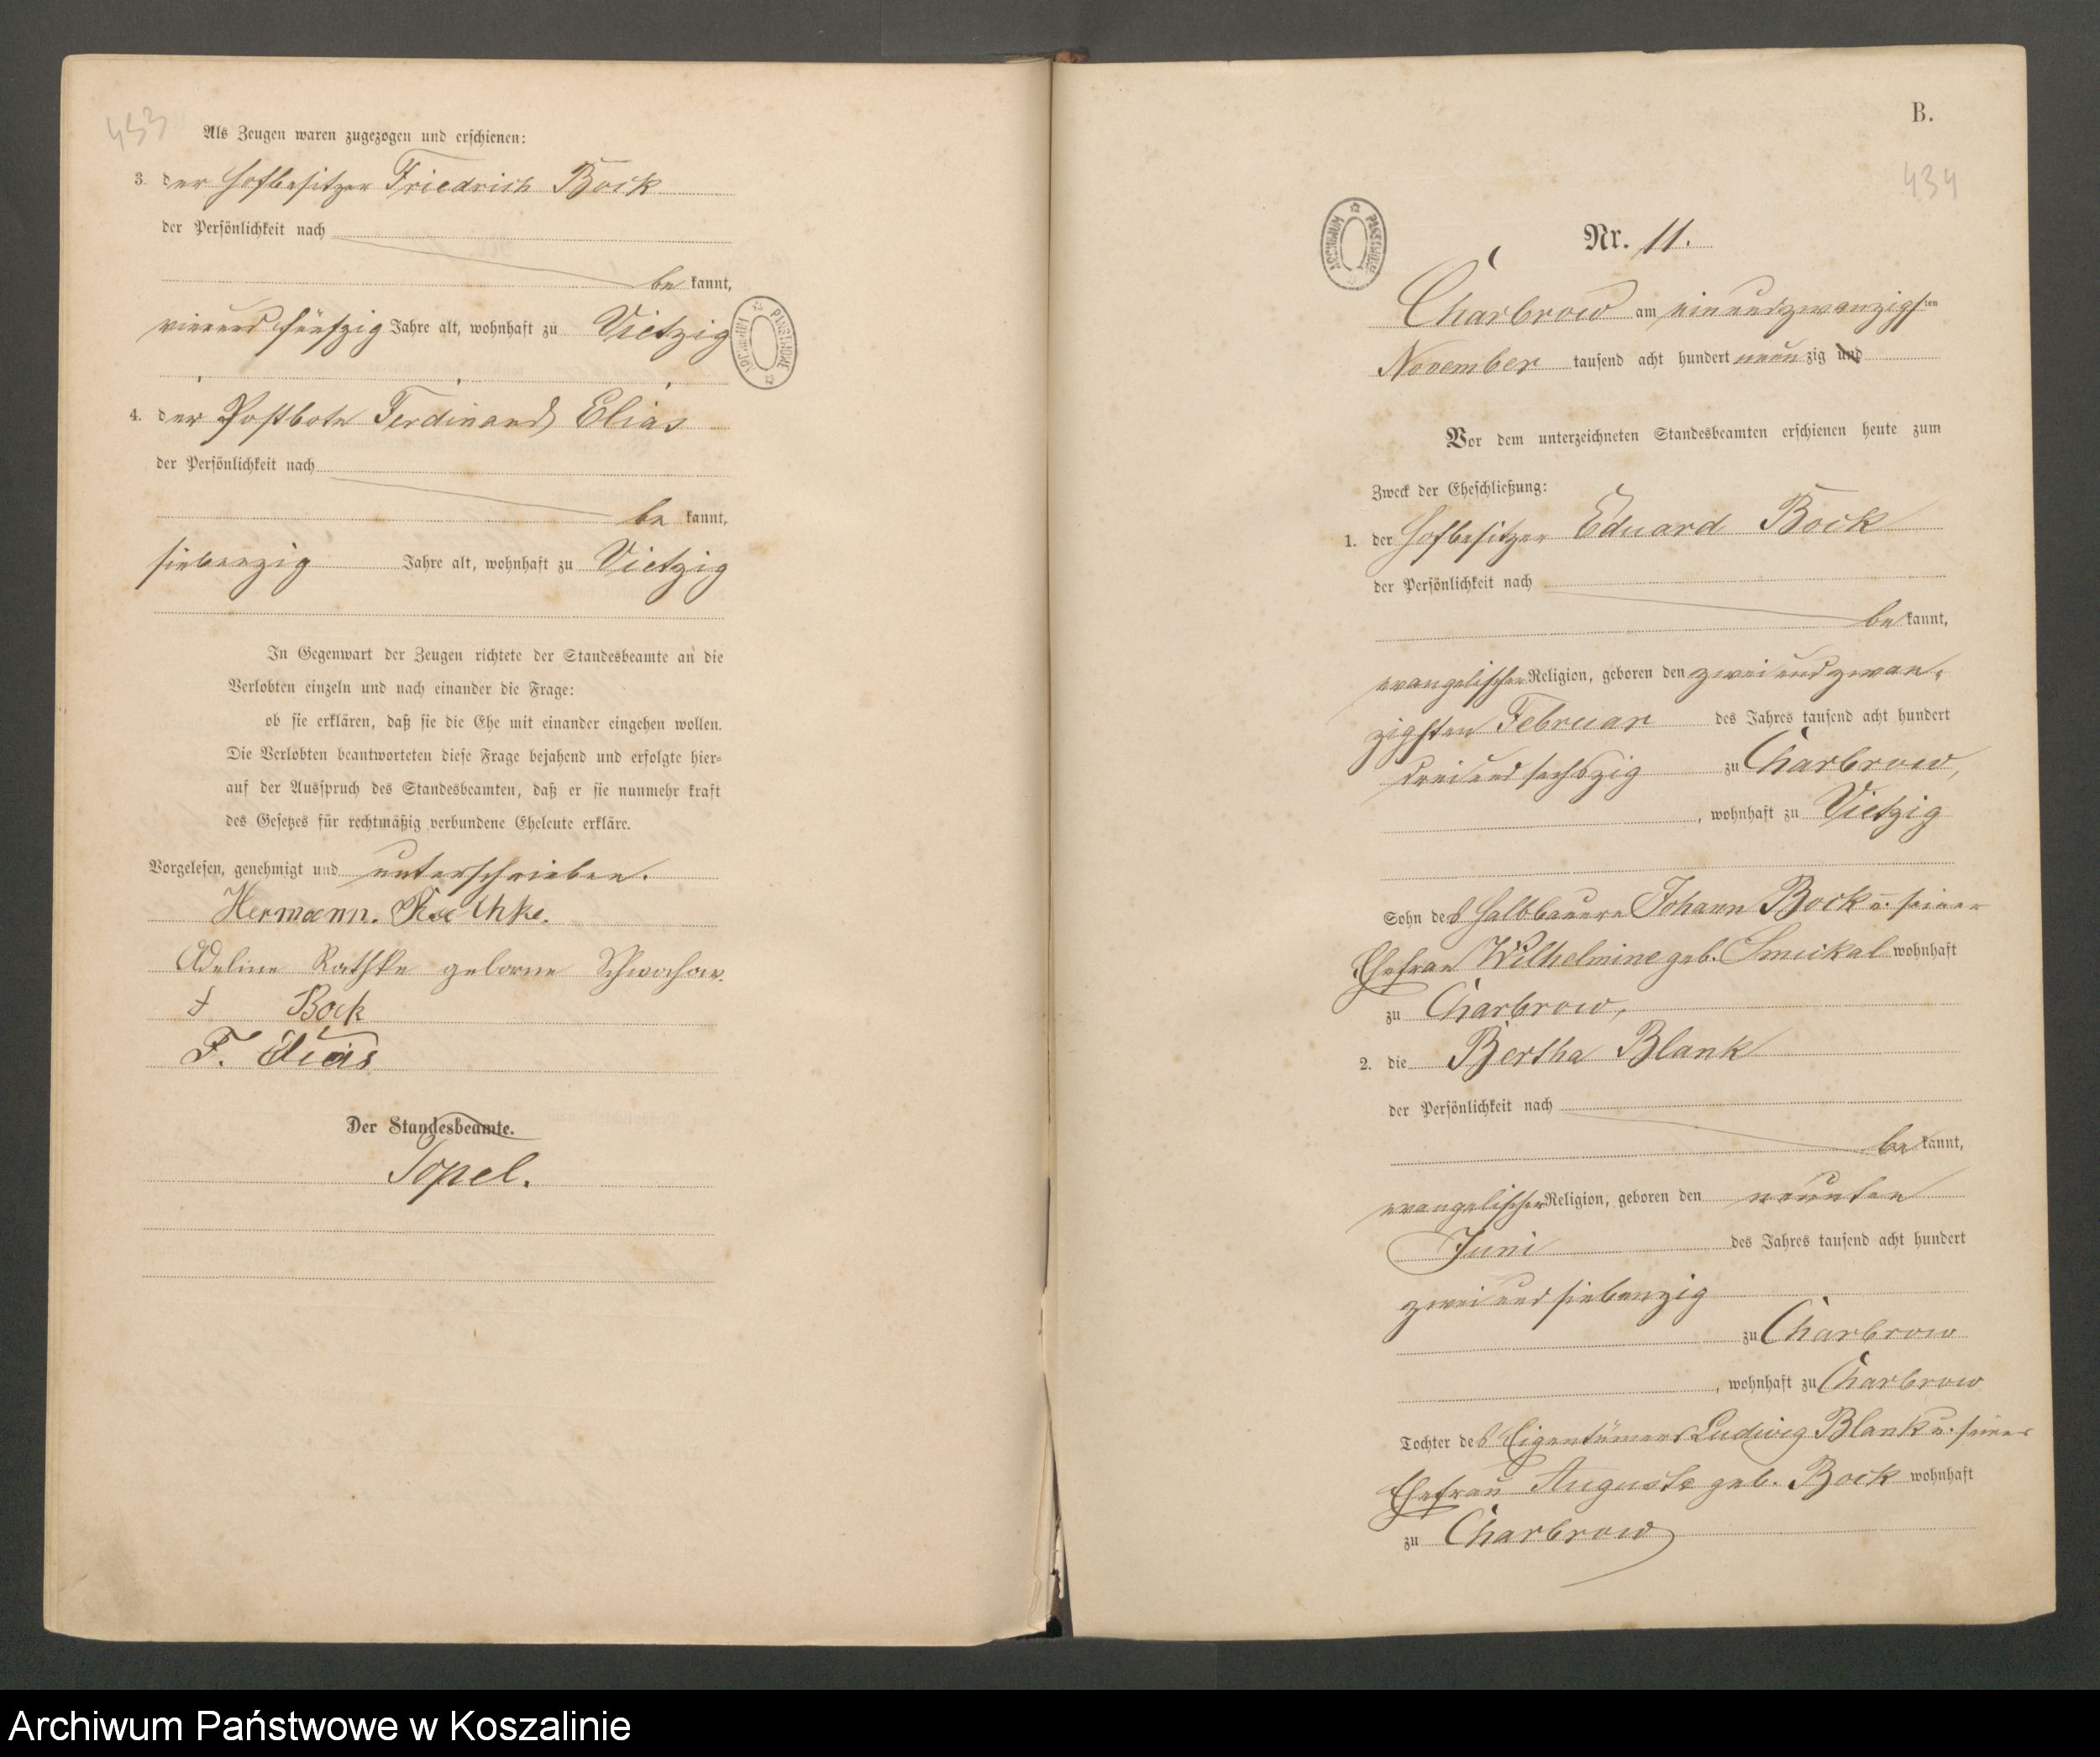 433
Als Zeugen waren zugezogen und erschienen:
3. der Hofbesitzer Friedrich Bock
der Persönlichkeit nach
be kannt,
vierundfünfzig Jahre alt, wohnhaft zu Vietzig
4. der Postbote Ferdinand Elias
der Persönlichkeit nach
be kannt,
siebenzig Jahre alt, wohnhaft zu Vietzig
In Gegenwart der Zeugen richtete der Standesbeamte an die
Verlobten einzeln und nach einander die Frage:
ob sie erklären, daß sie die Ehe mit einander eingehen wollen.
Die Verlobten beantworteten diese Frage bejahend und erfolgte hier=
auf der Ausspruch des Standesbeamten, daß er sie nunmehr kraft
des Gesetzes für rechtmäßig verbundene Eheleute erkläre.
Vorgelesen, genehmigt und unterschrieben.
Hermann. Rathke.
Adeline Rathke geborne
Bock
F. Elias
Der Standesbeamte.
Topel.
ARCHIWUM PAŃSTWOWE
B.
434
ARCHIWUM PAŃSTWOWE
Nr. 11.
Charbrow am einundzwanzigsten
November tausend acht hundert neunzig und
Vor dem unterzeichneten Standesbeamten erschienen heute zum
Zweck der Eheschließung:
1. der Hofbesitzer Eduard Bock
der Persönlichkeit nach
be kannt,
evangelischer Religion, geboren den zweiundzwan=
zigsten Februar des Jahres tausend acht hundert
dreiundsechszig zu Charbrow,
, wohnhaft zu Vietzig
Sohn des Halbbauern Johann Bock u. seiner
Ehefrau Wilhelmine geb. Smickal wohnhaft
zu Charbrow,
2. die Bertha Blank
der Persönlichkeit nach
be kannt,
evangelischer Religion, geboren den neunten
Juni des Jahres tausend acht hundert
zweiundsiebenzig
zu Charbrow
, wohnhaft zu Charbrow
Tochter des Eigentümers Ludwig Blank u. seiner
Ehefrau Auguste geb. Bock wohnhaft
zu Charbrow
Archiwum Państwowe w Koszalinie